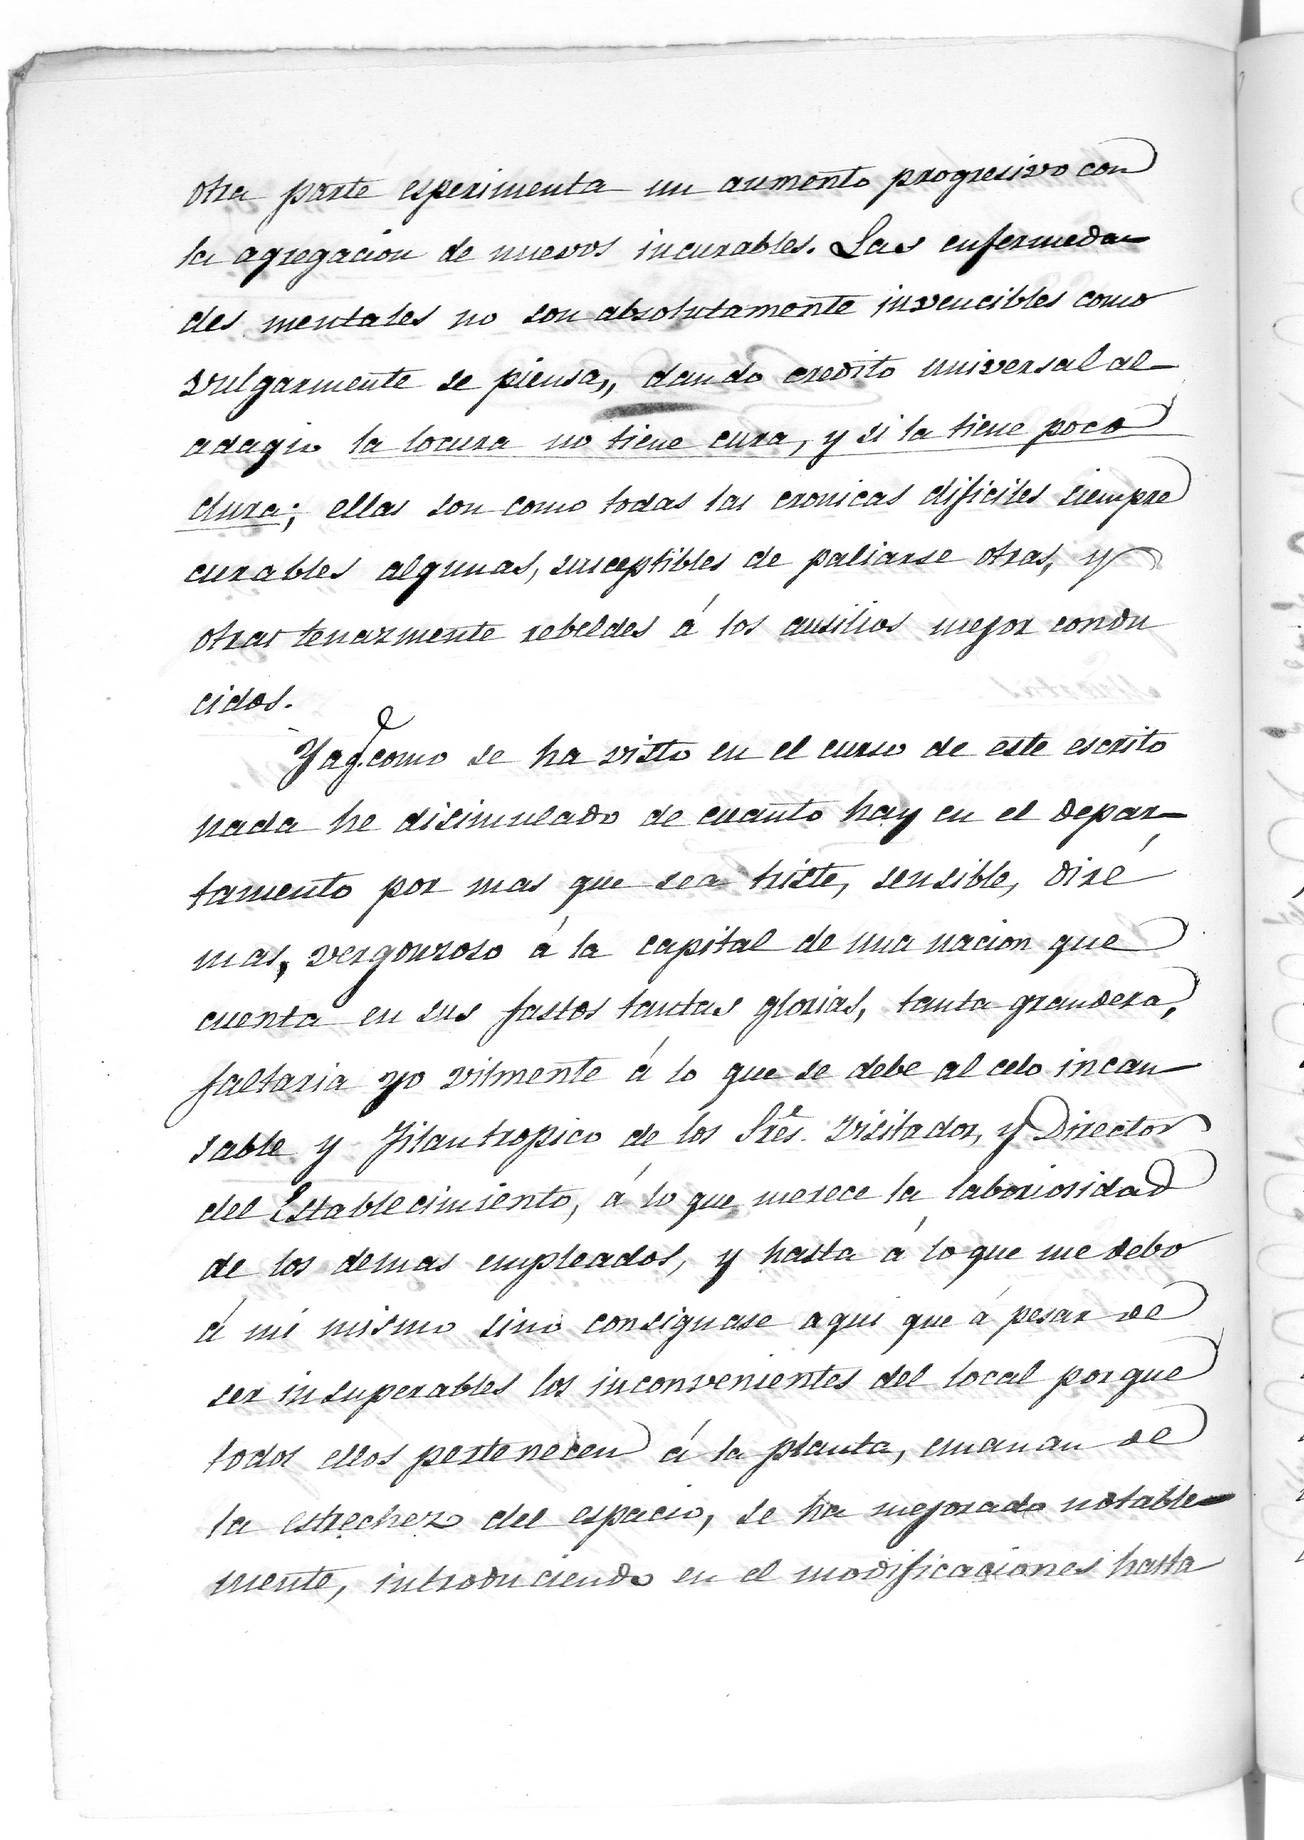 otra parte esperimenta un aumento progresivo con
la agregacion de nuevos incurables. Las enfermeda-
des mentales no son absolutamente invencibles como
vulgarmente se piensa,, dando credito universal al-
adagio la locura no tiene cura, y si la tiene poco
dura; ellas son como todas las cronicas dificiles siempre
curables algunas, susceptibles de paliarse otras, y
otras tenazmente rebeldes á los ausilios mejor condu
cidos.
Ya q.e como se ha visto en el curso de este escrito
nada he disimulado de cuanto hay en el depar-
tamento por mas que sea triste, sensible, diré
mas, vergonzoso á la capital de una nacion que
cuenta en sus fastos tantas glorias, tanta grandeza,
faltaria yo vilmente á lo que se debe al celo incan-
sable y filantropico de los Sres. Visitador, y Director
del Establecimiento, á lo que merece la laboriosidad
de los demas empleados, y hasta á lo que me debo
á mi mismo sino consignase aqui que á pesar de
ser insuperables los inconvenientes del local porque
todos ellos pertenecen á la planta, emanan de
la estrechez del espacio, se ha mejorado notable-
mente, introduciendo en el modificaciones hasta